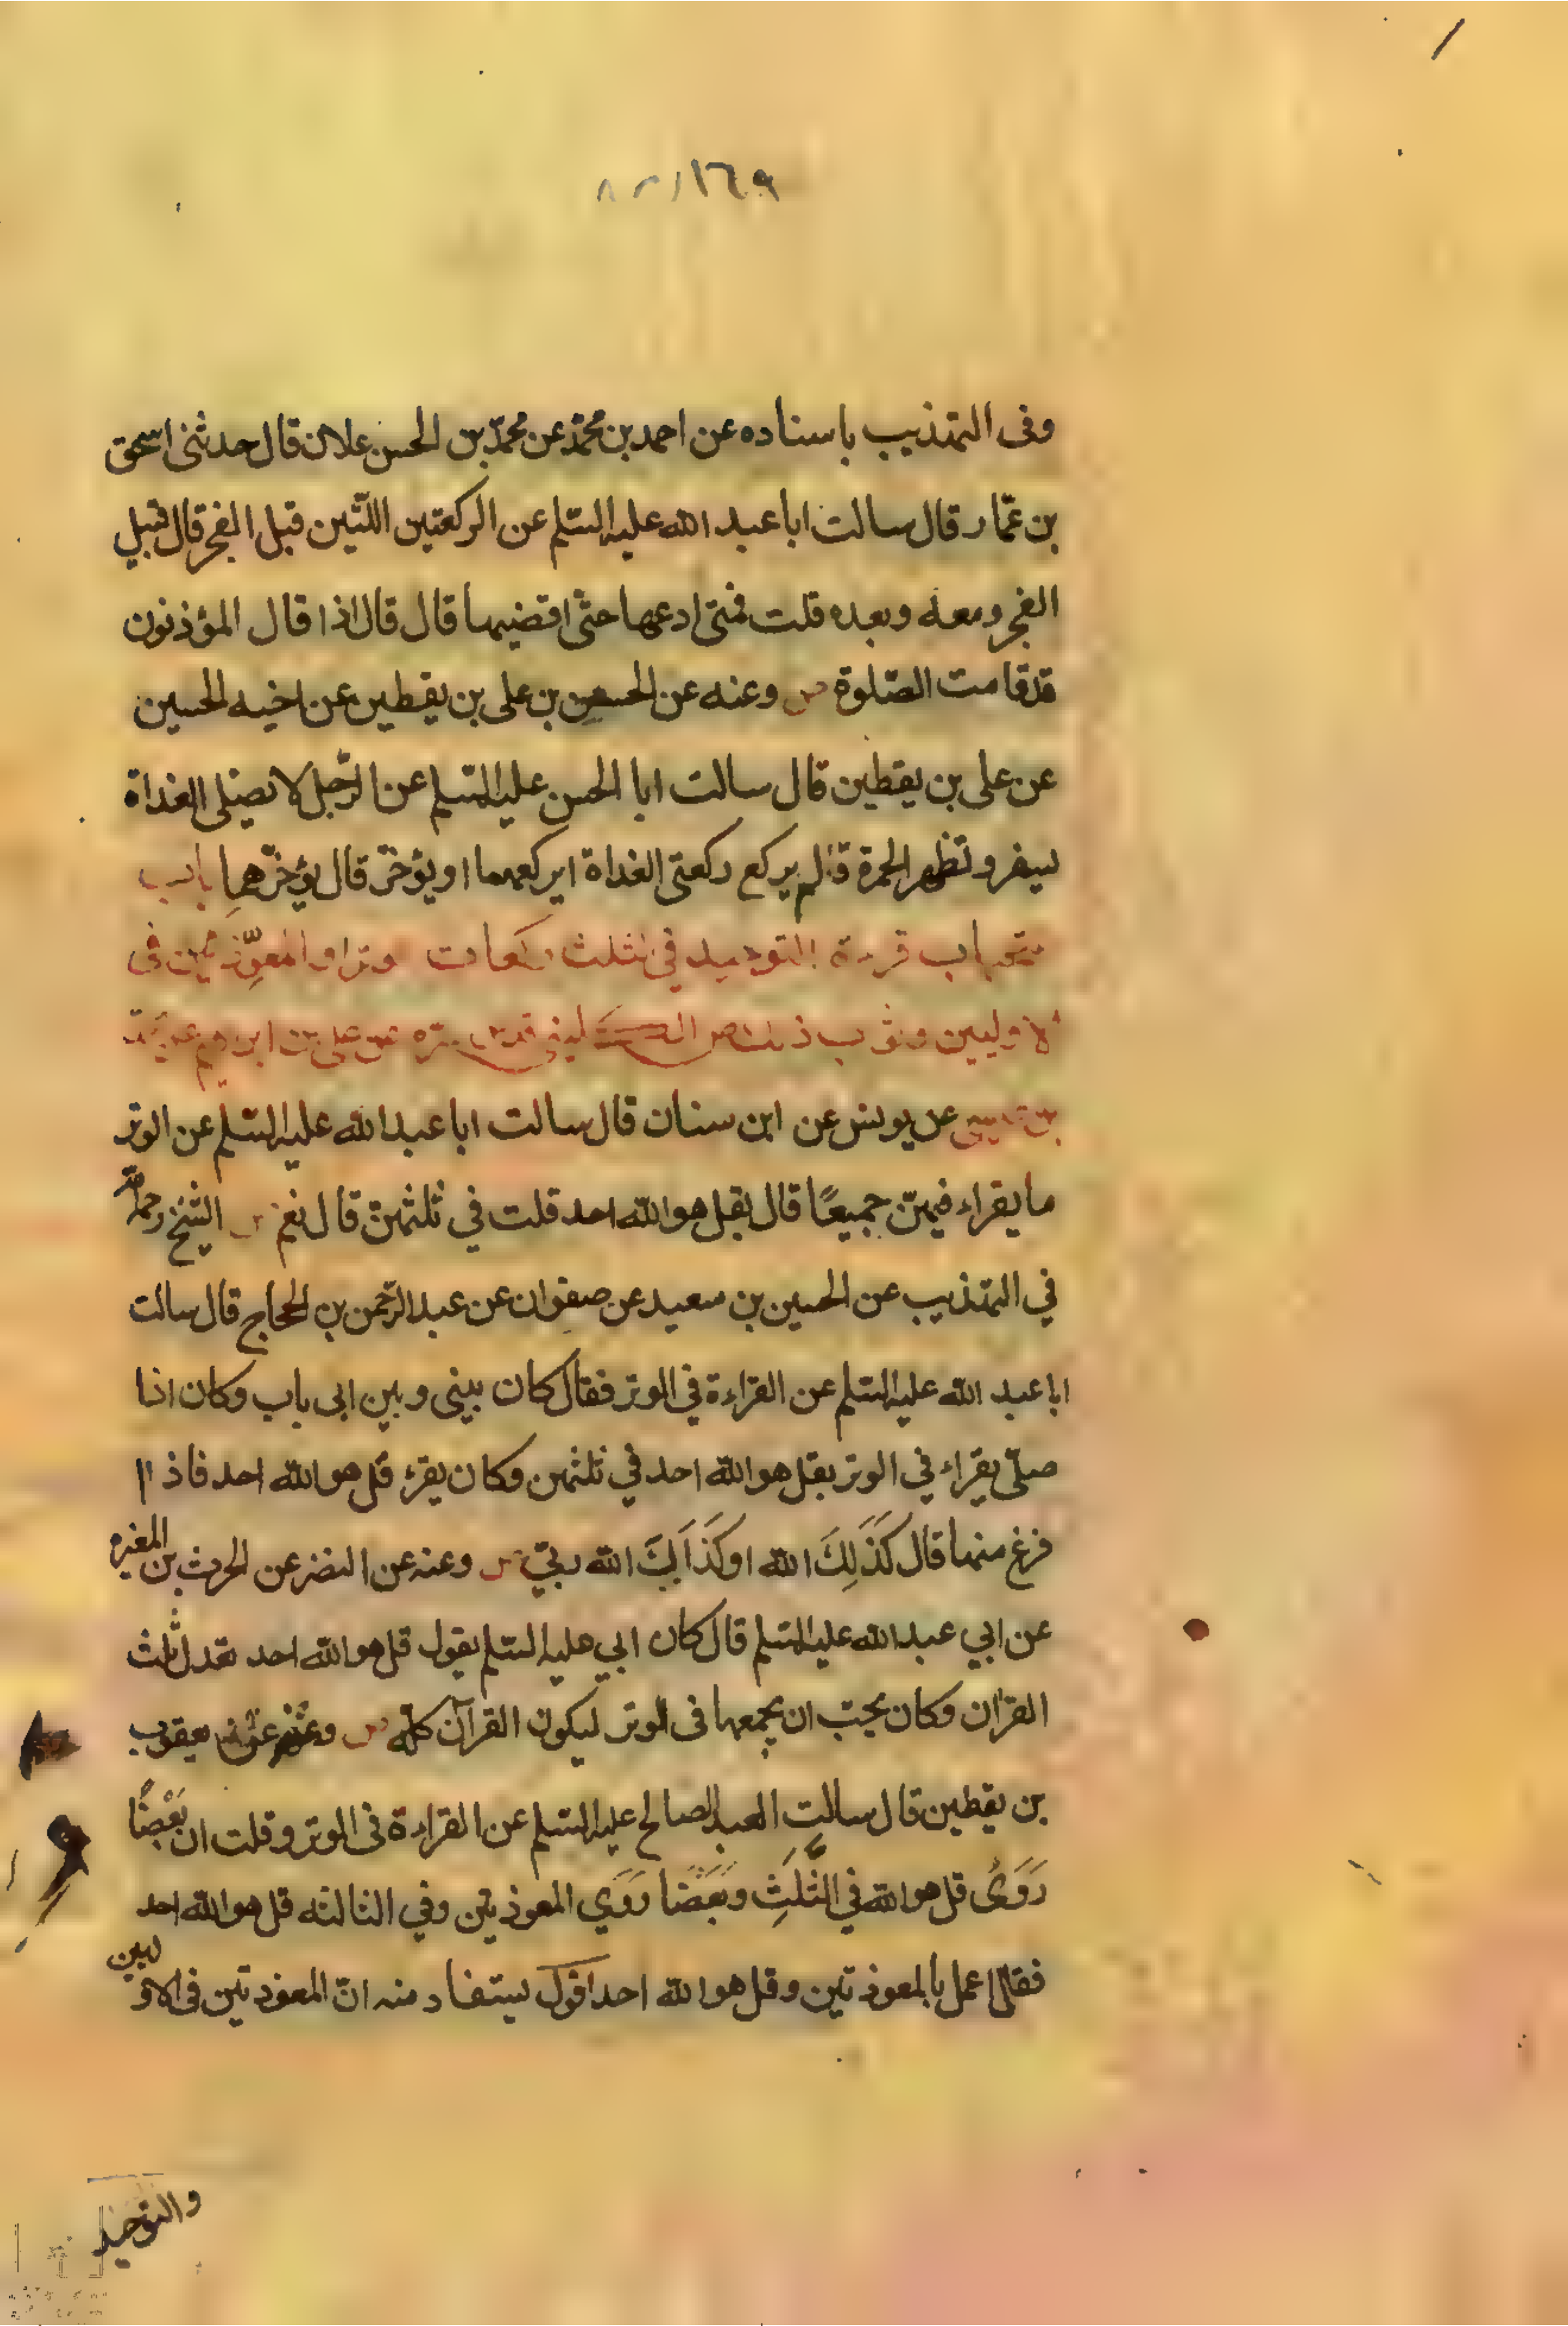 ٨٢/١٦٩
وفى التهذيب باسناده عن احمد بن محمّد عن محمّد بن الحسن علان قال حدثنى اسحق
بن عمّار قال سالت ابا عبد الله عليه السّلم عن الركعتين اللّتين قبل الفجر قال قبيل
الفجر ومعه وبعده قلت فمتى ادعها حتّى اقضيها قال قال اذا قال المؤذنون
قد قامت الصّلوة وعنه عن الحسن بن على بن يقطين عن اخيه الحسين
عن على بن يقطين قال سالت ابا الحسن عليه السّلم عن الرّجل لا يصلى الغداة
يسفر وتظهر الحمرة ولم يركع ركعتى الغداة ايركعهما او يؤخّر قال يؤخّرهما باب
قرءة التوحيد فى الثلث ركعات وترا والمعوّذتين فى
الاوليين وثواب ذلك عن على بن ابرهيم عن محمد
بن عيسى عن يونس عن ابن سنان قال سالت ابا عبد الله عليه السّلم عن الوتر
ما يقراء فيهنّ جميعًا قال بقل هو الله احد قلت في ثلثهنّ قال نعم الشيخ رحمه الله
في التهذيب عن الحسين بن سعيد عن صفوان عن عبد الرّحمن بن الحجاج قال سالت
ابا عبد الله عليه السّلم عن القراءة في الوتر فقال كان بينى وبين ابى باب وكان اذا
صلّى يقراء في الوتر بقل هو الله احد في ثلثهن وكان يقرء قل هو الله احد فاذا
فرغ منها قال كَذَلِكَ الله او كَذَالِكَ الله ربّي وعنه عن النضر عن الحرث بن المغيره
عن ابي عبد الله عليه السّلم قال كان ابي عليه السّلم يقول قل هو الله احد تعدل ثلث
القران وكان يحبّ ان يجمعها فى الوتر ليكون القرآن كلّه وعنه عن يعقوب
بن يقطين قال سالت العبد الصالح عليه السّلم عن القراءة فى الوتر وقلت ان بَعْضًا
رَوَىٰ قل هو الله في الثَّلَثِ وبَعَضًا رَوَي المعوذتين وفي الثالثه قل هو الله احد
فقال اعمل بالمعوذتين وقل هو الله احد اقول يستفاد منه انّ المعوذتين فى الاوليين
والتوحيد